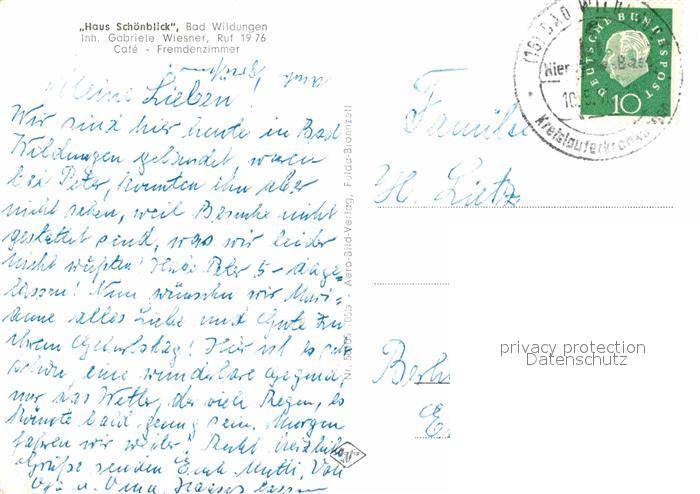 „Haus Schönblick", Bad Wildungen
Inh. Gabriele Wiesner, Ruf 19 76
Café - Fremdenzimmer
Meine Lieben!
Wir sind hier heute in Bad
Wildungen gelandet, waren
bei Peter, konnten ihn aber
nicht sehen, weil Besuche nicht
gestattet sind, was wir leider
nicht wußten! Peter 5-
lassen! Nun wünschen wir Mari=
anne alles Liebe und Gute zu
ihrem Geburtstag! Hier ist es sehr
schön, eine wunderbare Gegend,
nur das Wetter, der viele Regen, es
könnte bald genug sein. Morgen
fahren wir weiter! Recht herzliche
Grüße senden Euch Mutti, Vati
Opa u. Oma. lassen
Aero-Bild-Verlag, Fulda-Bronnzell
Familie
H. Lietz
Berlin
(16) BAD WILDUNGEN
Nier
10.5.
Kreislauferkrank
DEUTSCHE BUNDESPOST
10
privacy protection
Datenschutz